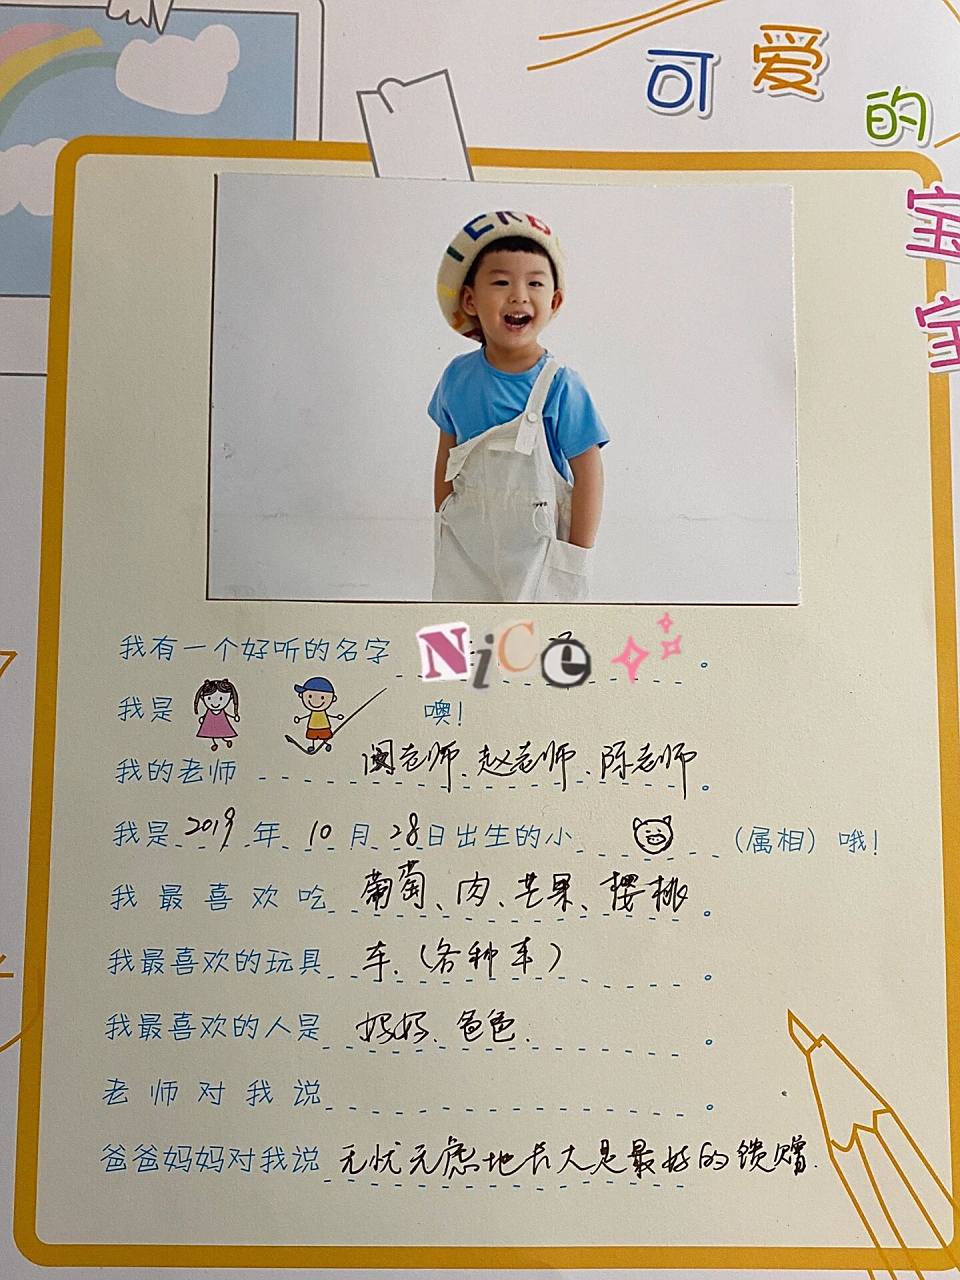 可爱的
宝
宝
我有一个好听的名字 NiCe 。
我是 噢！
我的老师 闵老师、赵老师、陈老师。
我是2019年10月28日出生的小 （属相）哦！
我最喜欢吃 葡萄、肉、芒果、樱桃。
我最喜欢的玩具 车、（各种车）。
我最喜欢的人是 妈妈、爸爸.。
老师对我说 。
爸爸妈妈对我说 无忧无虑地长大是最好的馈赠.